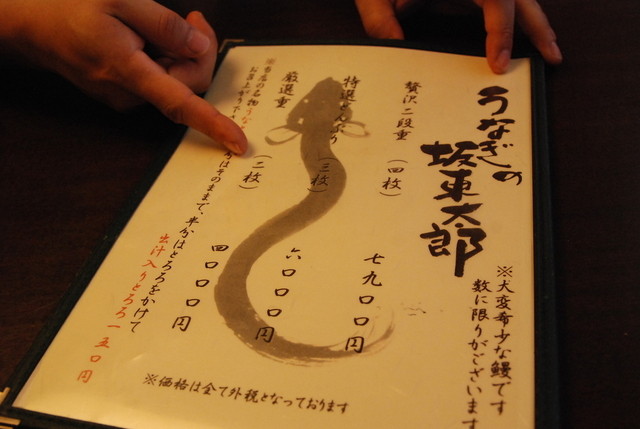 うなぎの
坂東太郎
※大変希少な鰻です
数に限りがございます
贅沢二段重(四枚)七九〇〇円
特選どんぶり(三枚)六〇〇〇円
厳選重(二枚)四〇〇〇円
※当店の名物うな
はそのままで、半分はとろろをかけて
お召上がり下
出汁入りとろろ一五〇円
※価格は全て外税となっております